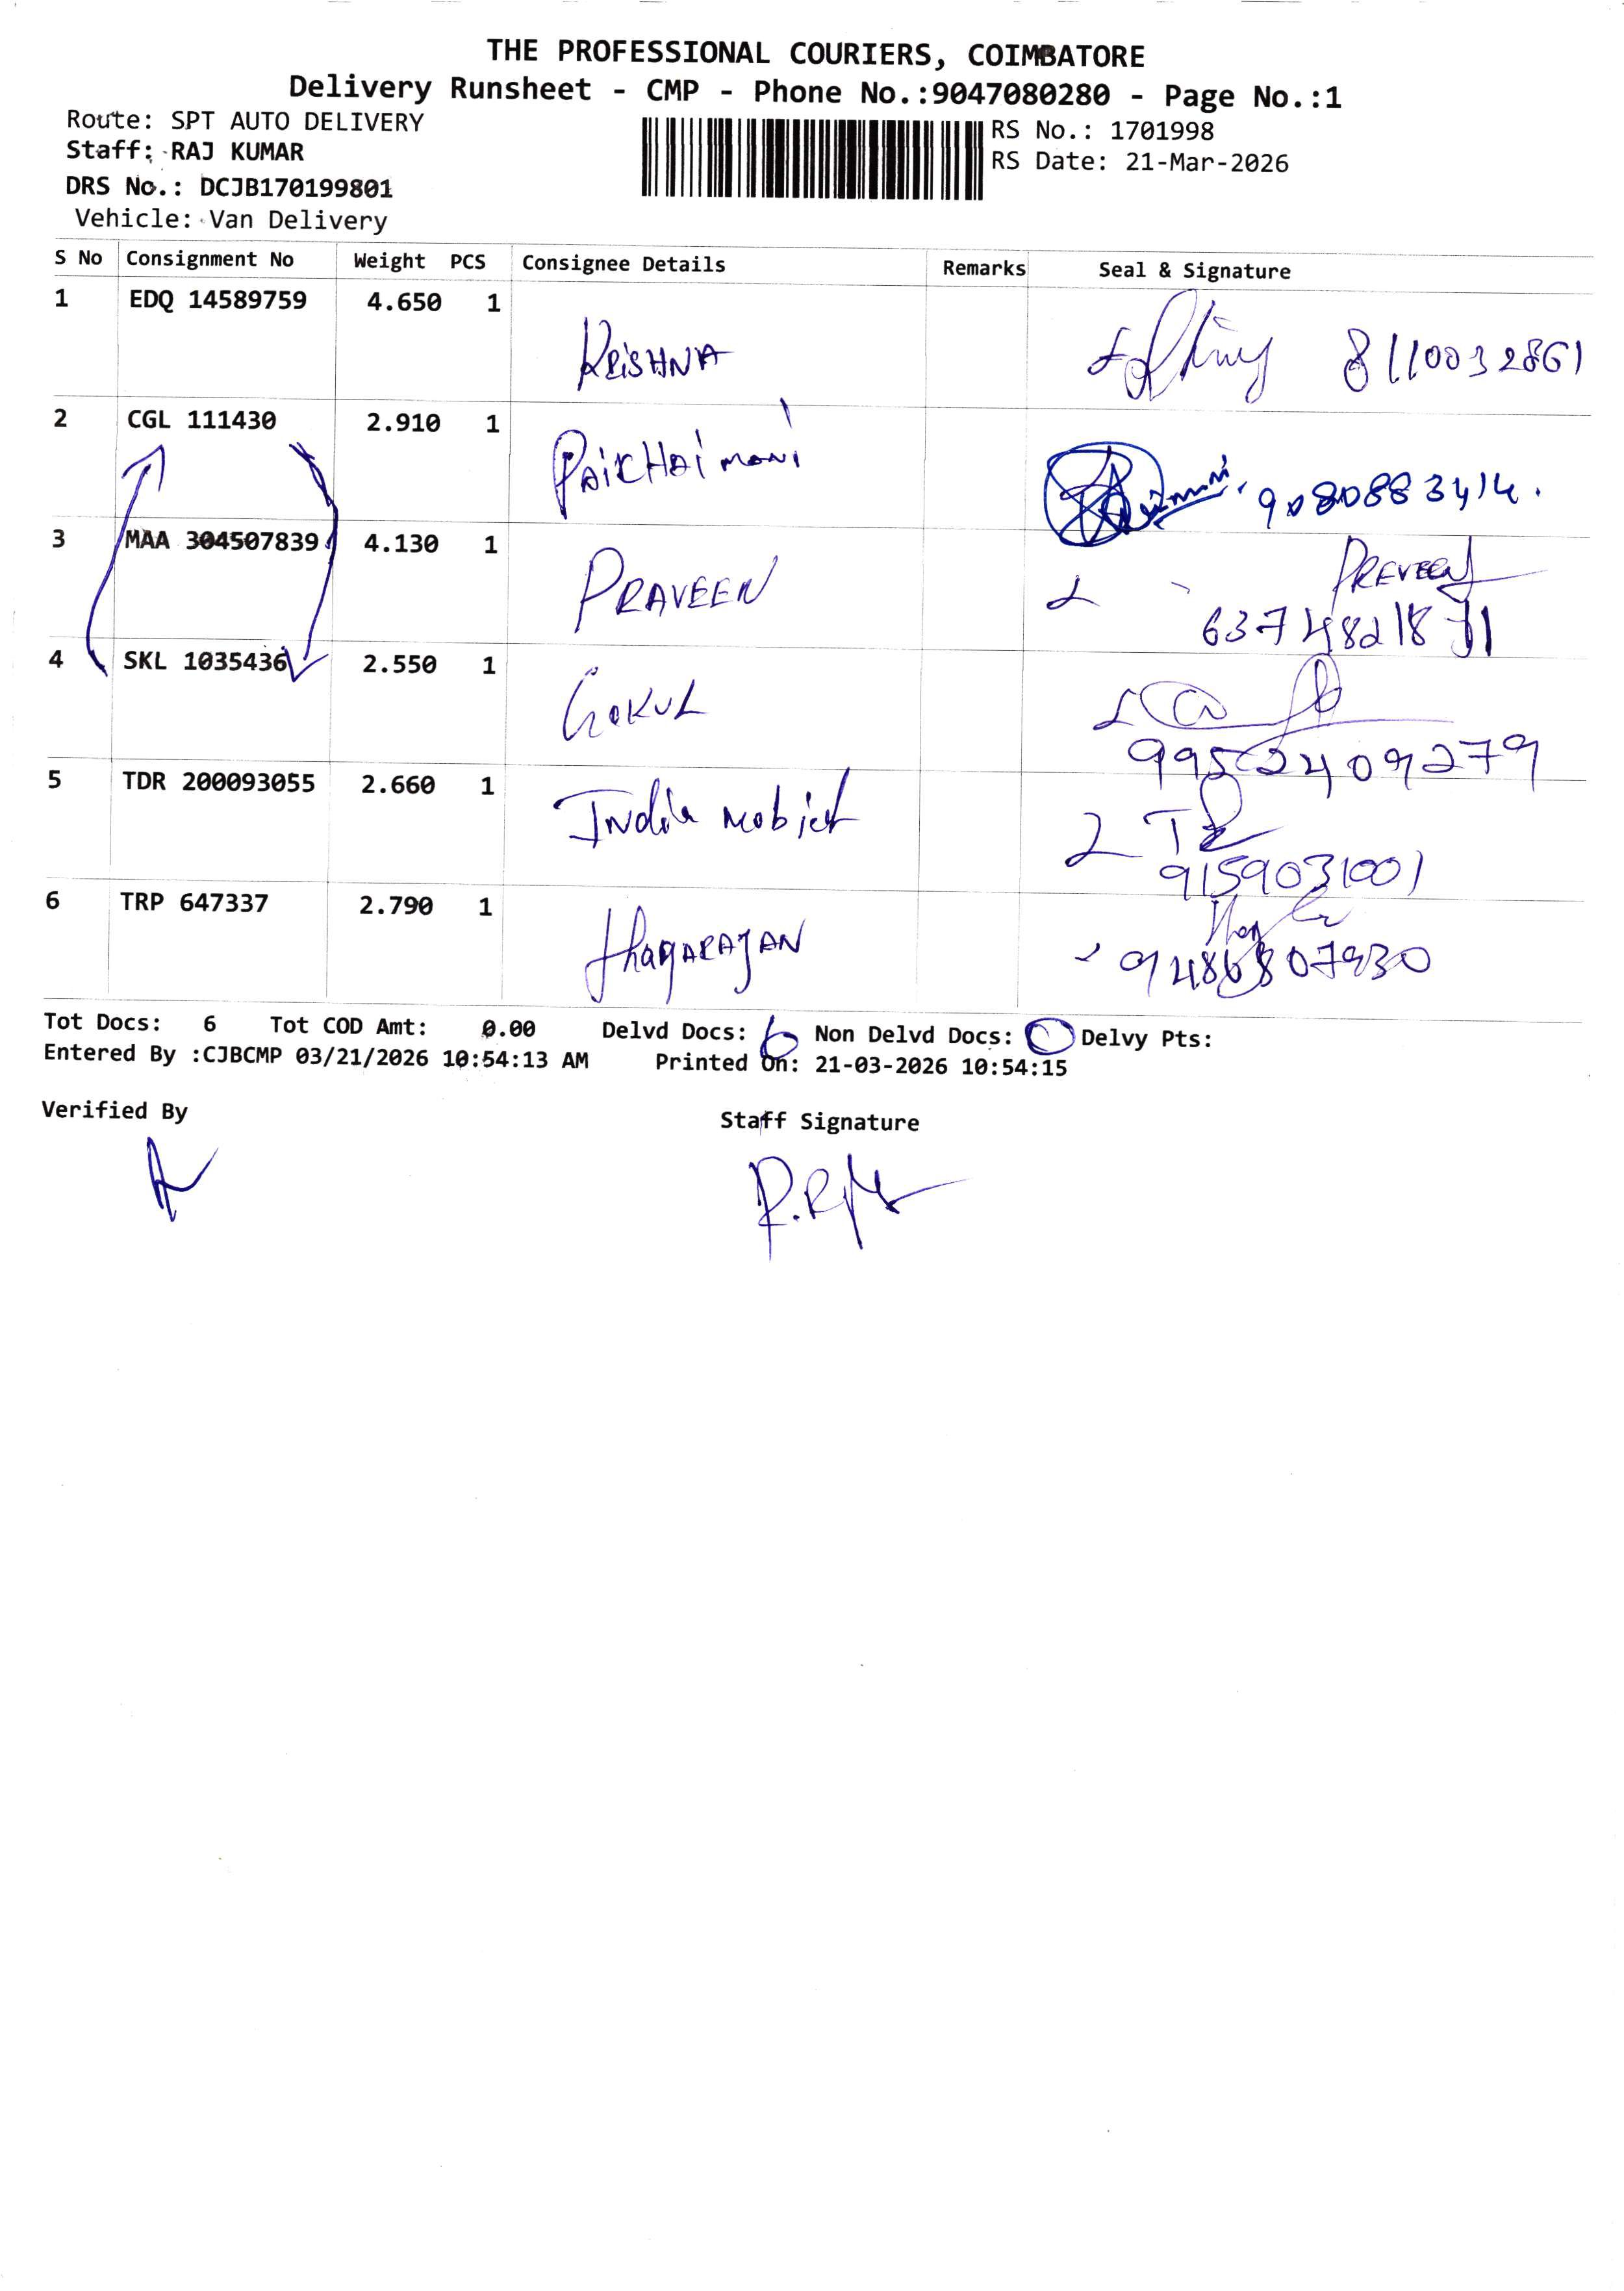 THE PROFESSIONAL COURIERS, COIMBATORE
Delivery Runsheet - CMP - Phone No.:9047080280 - Page No.:1
Route: SPT AUTO DELIVERY
Staff: RAJ KUMAR
DRS No.: DCJB170199801
Vehicle: Van Delivery
RS No.: 1701998
RS Date: 21-Mar-2026
S No Consignment No Weight PCS Consignee Details Remarks Seal & Signature
1 EDQ 14589759 4.650 1 KRISHNA 8110032861
2 CGL 111430 2.910 1 PAICHAI MANI 9080883414.
3 MAA 304507839 4.130 1 PRAVEEN PREVEEN
4 SKL 1035436 2.550 1 GOKUL
9952409279
5 TDR 200093055 2.660 1 India
9159031001
6 TRP 647337 2.790 1 thagaRAJAN
Tot Docs: 6 Tot COD Amt: 0.00 Delvd Docs: 6 Non Delvd Docs: 0 Delvy Pts:
Entered By :CJBCMP 03/21/2026 10:54:13 AM Printed On: 21-03-2026 10:54:15
Verified By Staff Signature